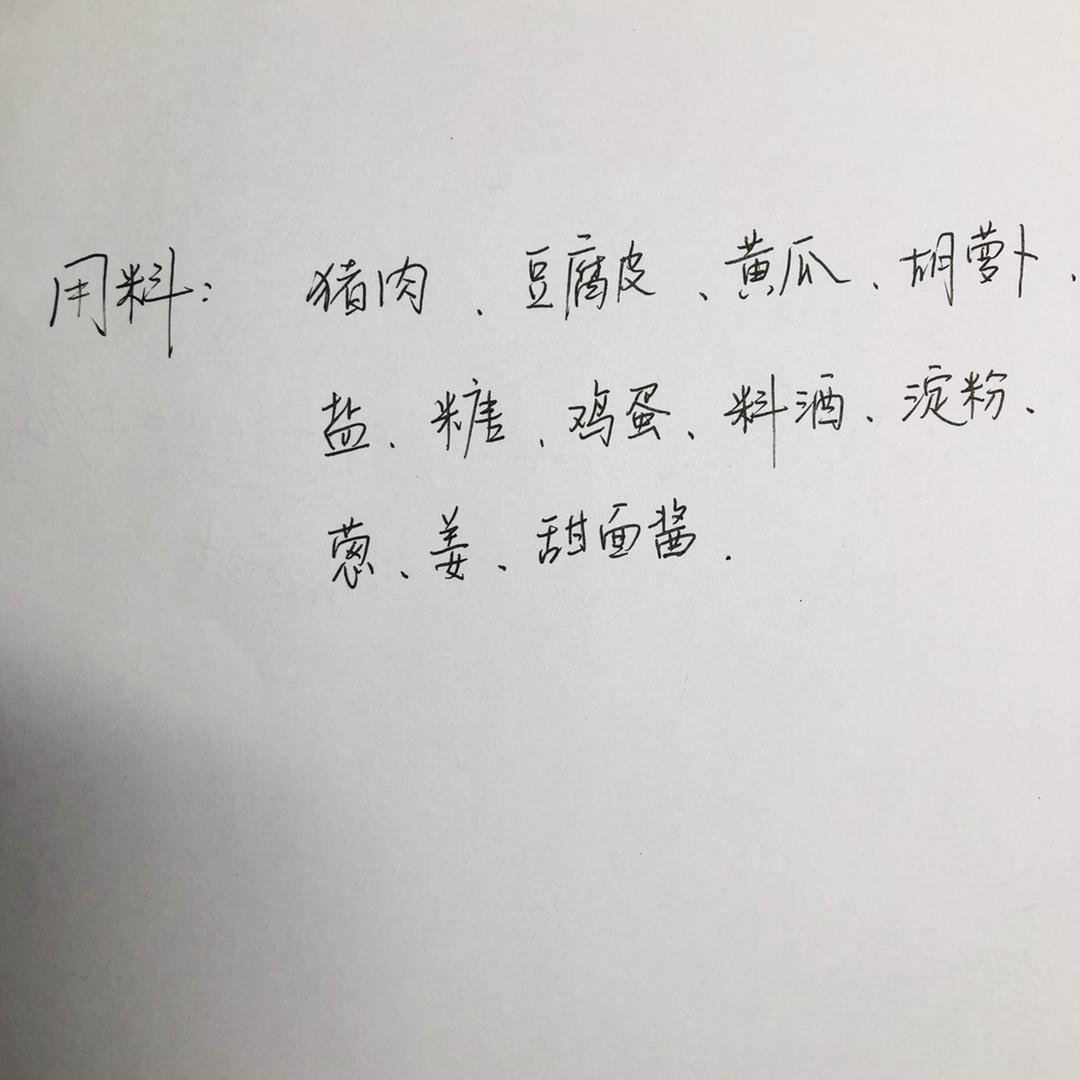 用料: 猪肉、豆腐皮、黄瓜、胡萝卜、
盐、糖、鸡蛋、料酒、淀粉、
葱、姜、甜面酱.